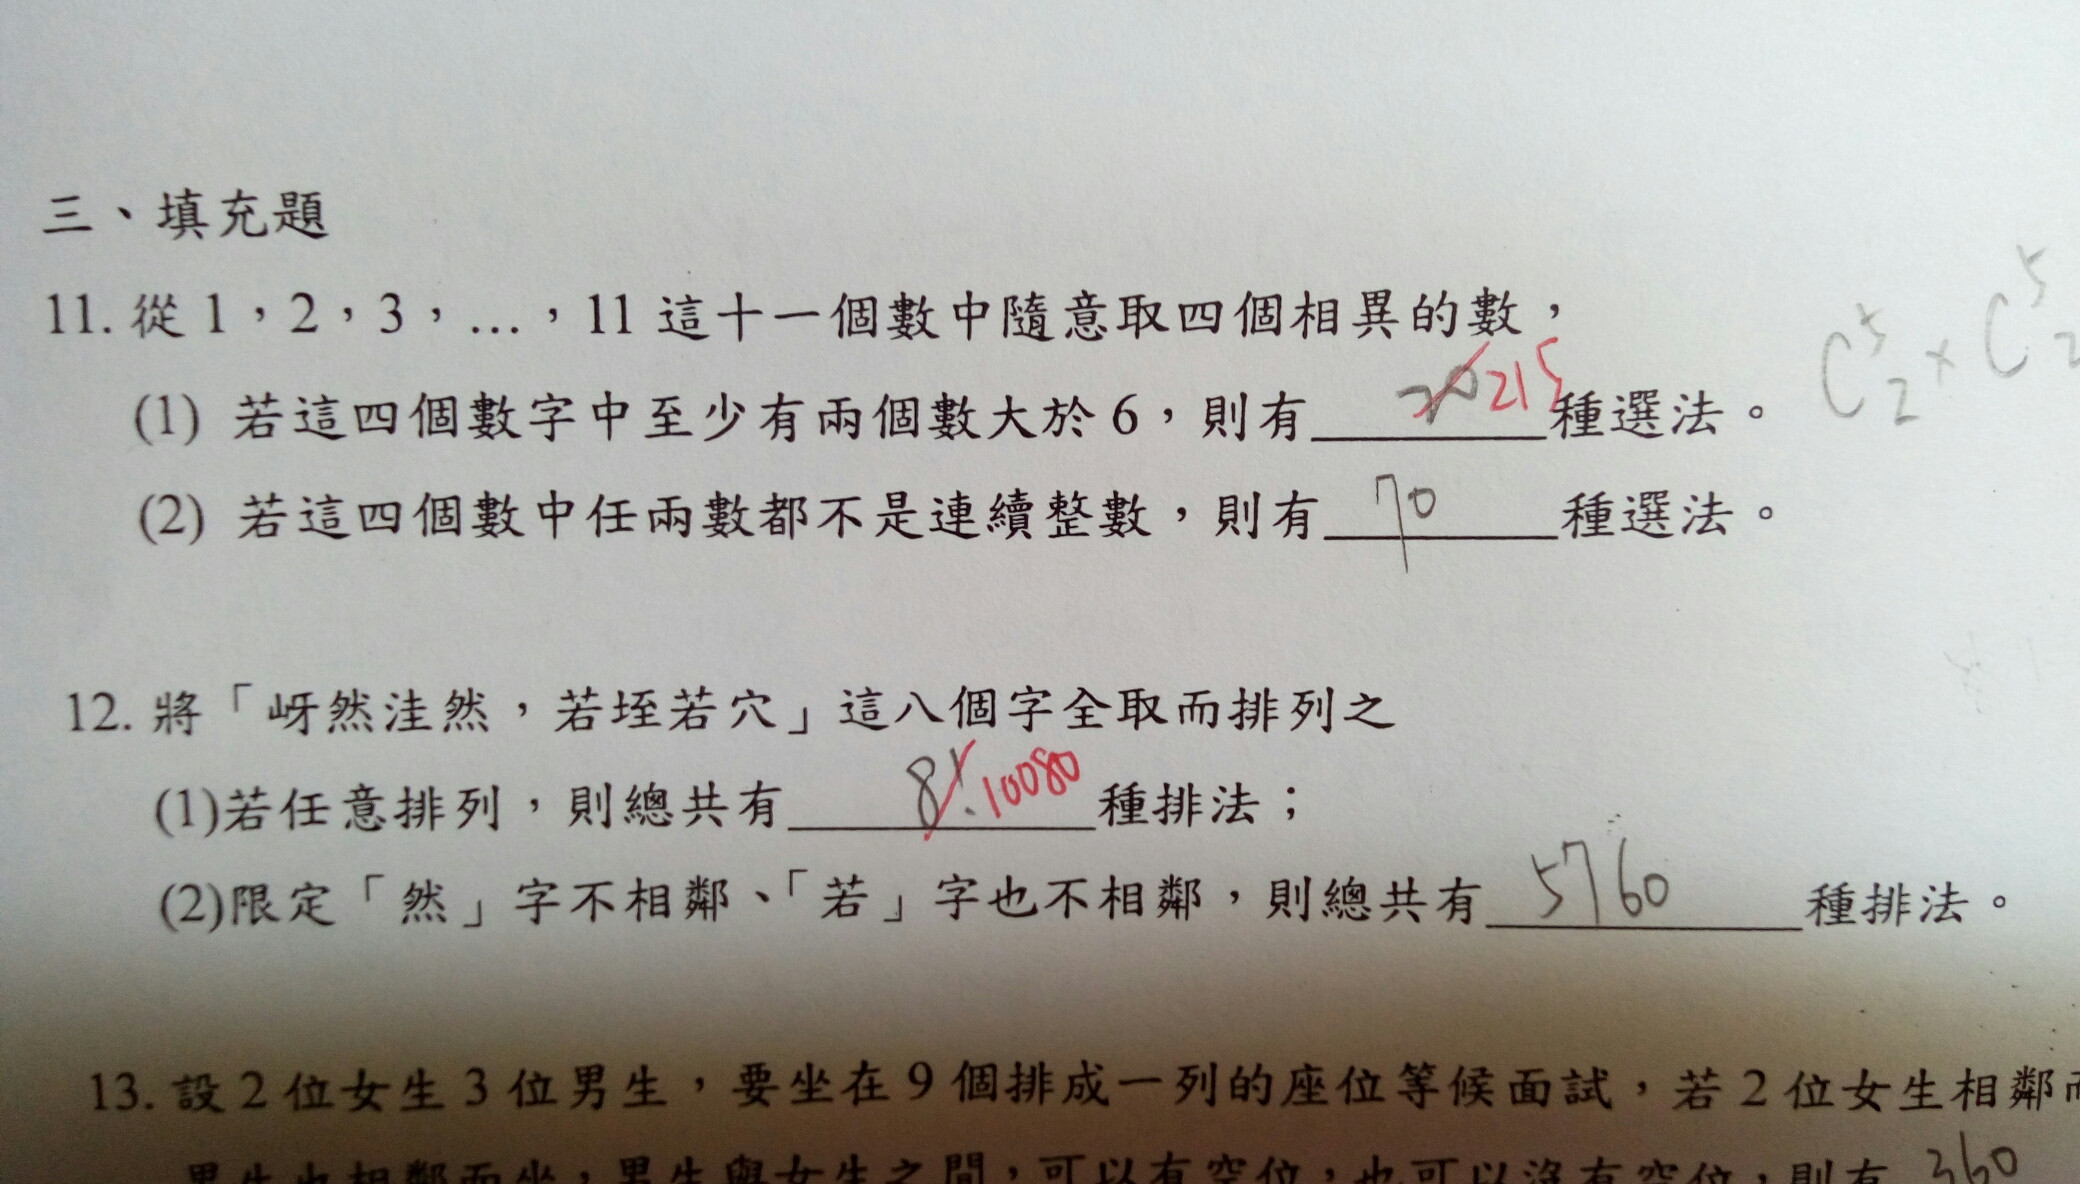 三、填充題
11. 從 1，2，3，…，11 這十一個數中隨意取四個相異的數，
(1) 若這四個數字中至少有兩個數大於 6，則有 215 種選法。
C⁵₂ × C⁵₂
(2) 若這四個數中任兩數都不是連續整數，則有 70 種選法。
12. 將「岈然洼然，若垤若穴」這八個字全取而排列之
(1)若任意排列，則總共有 8! 10080 種排法；
(2)限定「然」字不相鄰、「若」字也不相鄰，則總共有 5760 種排法。
13. 設 2 位女生 3 位男生，要坐在 9 個排成一列的座位等候面試，若 2 位女生相鄰而
男生也相鄰而坐，男生與女生之間，可以有空位，也可以沒有空位，則有 360